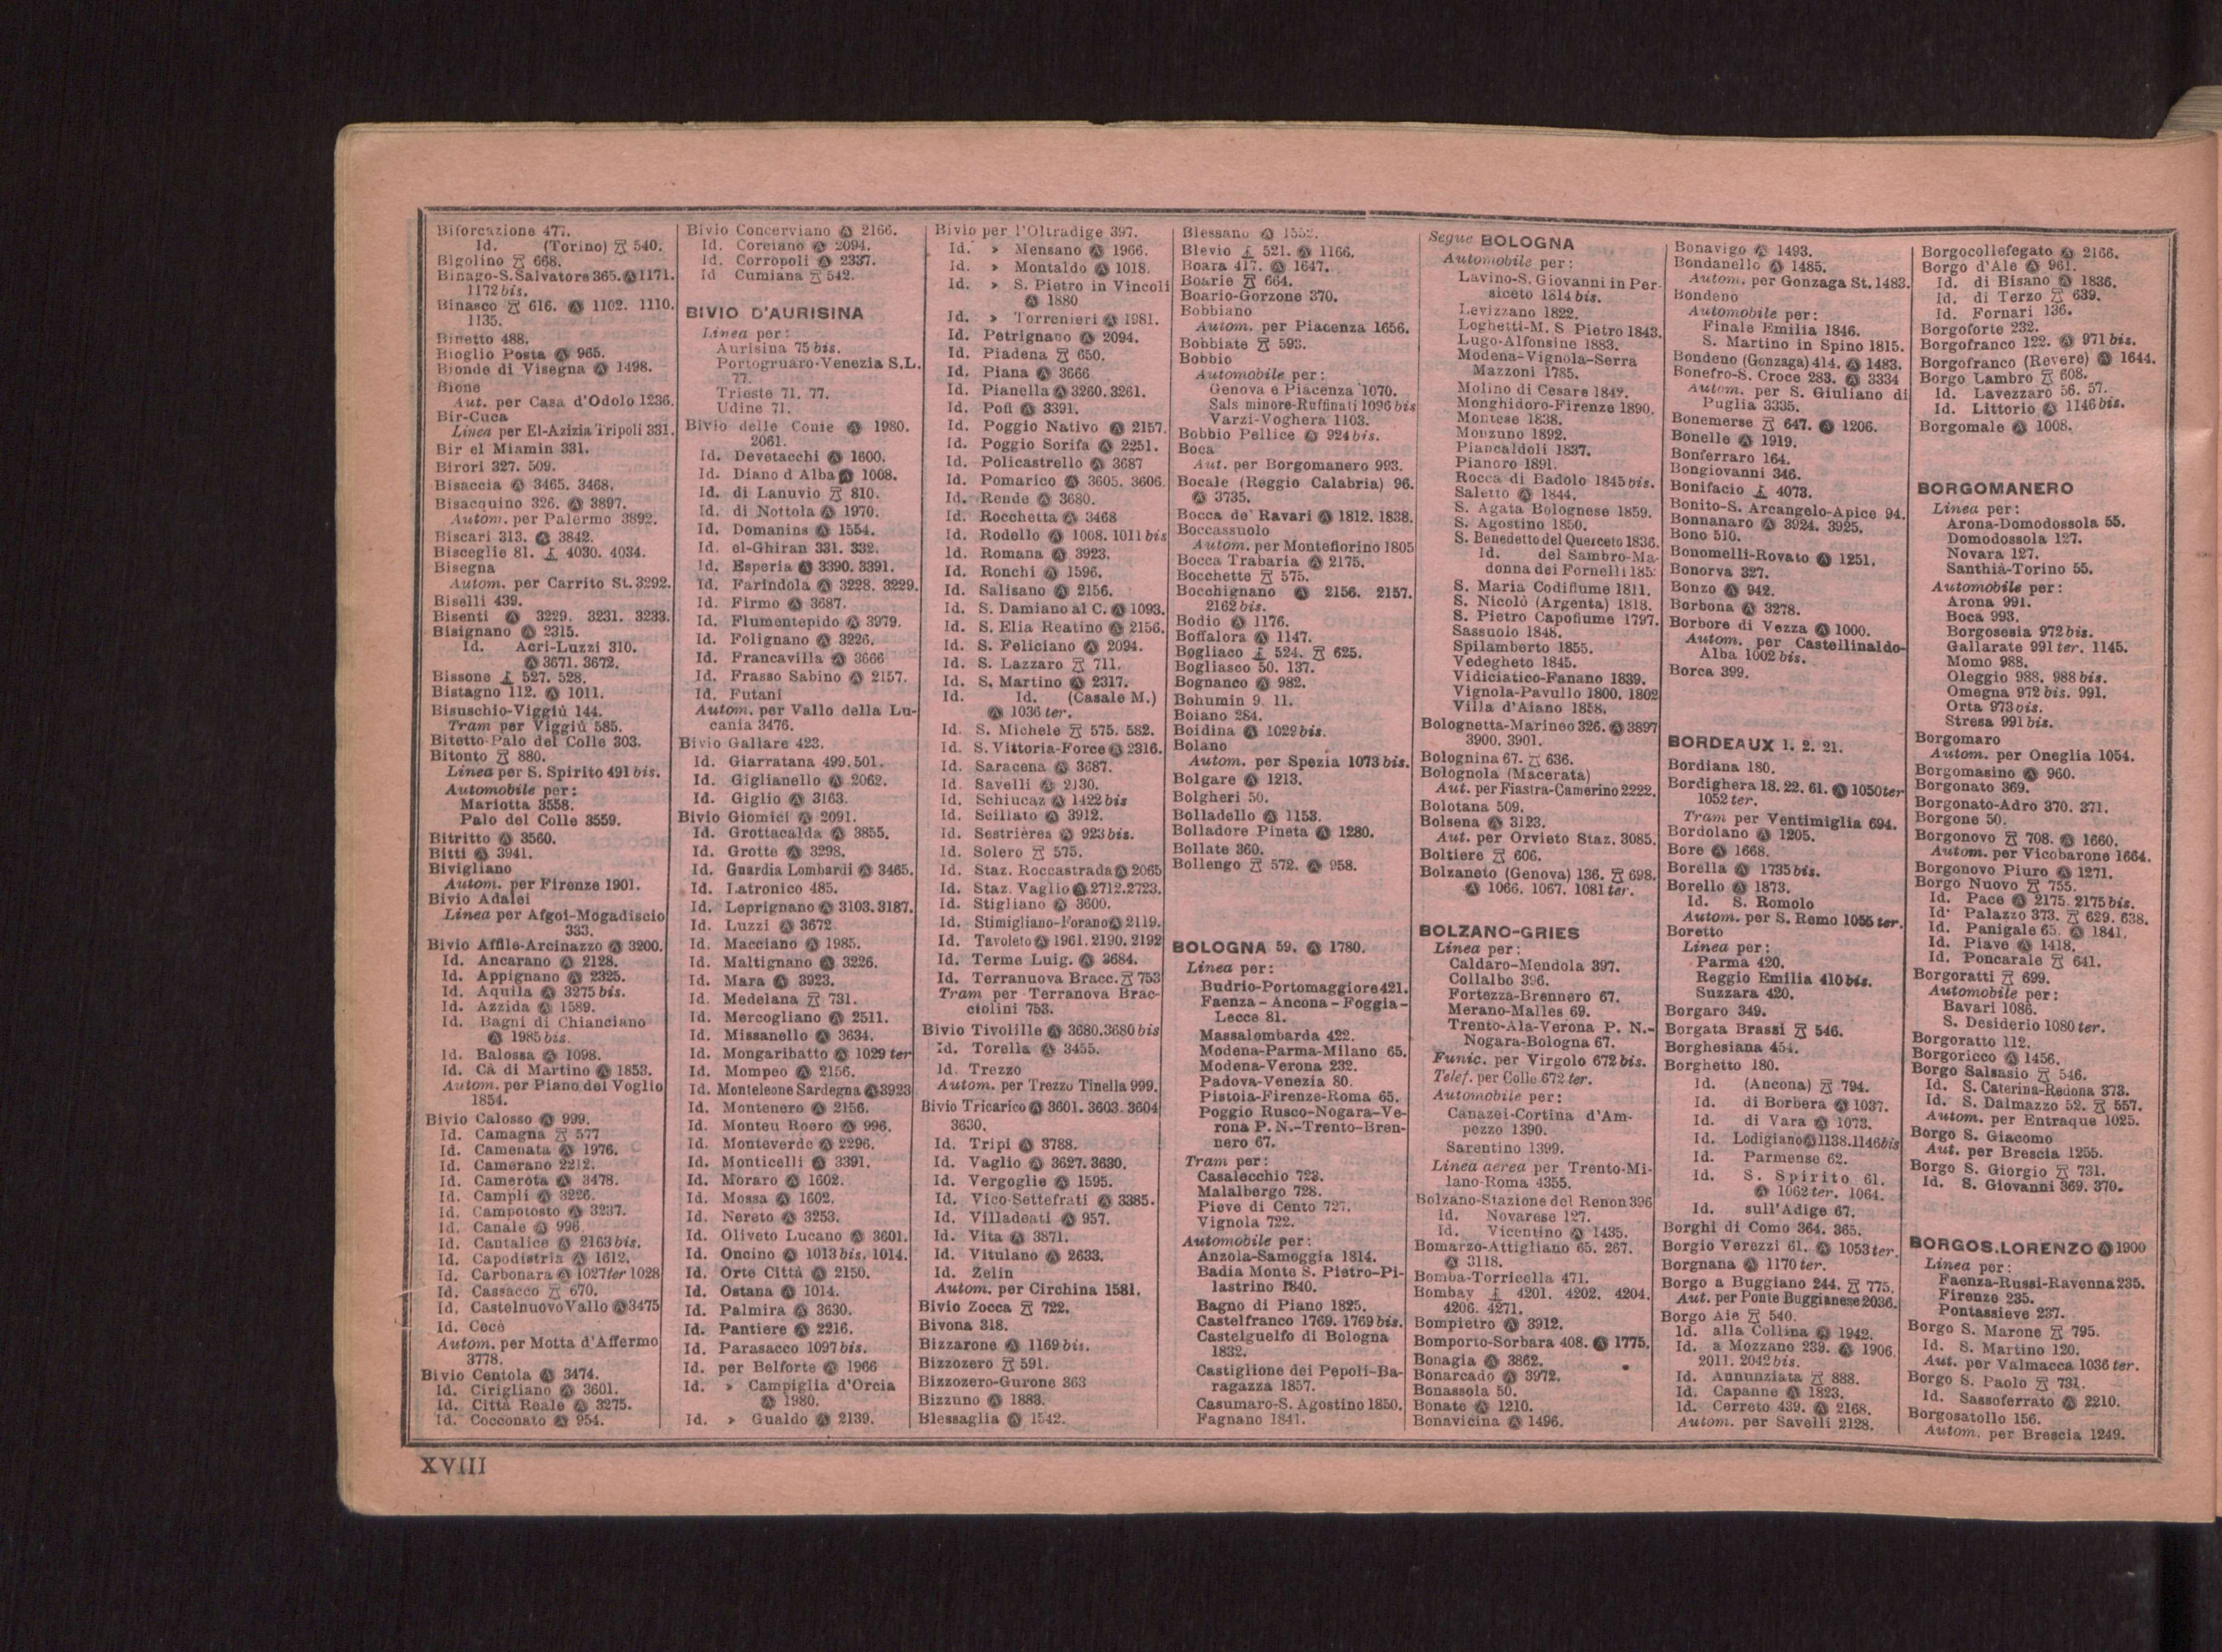 Biforcazione 477.
Id. (Torino) 540.
Bigolino 668.
Binago-S.Salvatore 365. Ⓐ 1171.
1172 bis.
Binasco 616. Ⓐ 1102. 1110.
1135.
Binetto 488.
Bioglio Posta Ⓐ 965.
Bionde di Visegna Ⓐ 1498.
Bione
Aut. per Casa d'Odolo 1236.
Bir-Cuca
Linea per El-Azizia Tripoli 331.
Bir el Miamin 331.
Birori 327. 509.
Bisaccia Ⓐ 3465. 3468.
Bisacquino 326. Ⓐ 3897.
Autom. per Palermo 3892.
Biscari 313. Ⓐ 3842.
Bisceglie 81. 4030. 4034.
Bisegna
Autom. per Carrito St. 3292.
Biselli 439.
Bisenti Ⓐ 3229. 3231. 3233.
Bisignano Ⓐ 2315.
Id. Acri-Luzzi 310.
Ⓐ 3671. 3672.
Bissone 527. 528.
Bistagno 112. Ⓐ 1011.
Bisuschio-Viggiù 144.
Tram per Viggiù 585.
Bitetto-Palo del Colle 303.
Bitonto 880.
Linea per S. Spirito 491 bis.
Automobile per:
Mariotta 3558.
Palo del Colle 3559.
Bitritto Ⓐ 3560.
Bitti Ⓐ 3941.
Bivigliano
Autom. per Firenze 1901.
Bivio Adalei
Linea per Afgoi-Mogadiscio
333.
Bivio Affile-Arcinazzo Ⓐ 3200.
Id. Ancarano Ⓐ 2128.
Id. Appignano Ⓐ 2325.
Id. Aquila Ⓐ 3275 bis.
Id. Azzida Ⓐ 1589.
Id. Bagni di Chianciano
Ⓐ 1985 bis.
Id. Balossa Ⓐ 1098.
Id. Cà di Martino Ⓐ 1853.
Autom. per Piano del Voglio
1854.
Bivio Calosso Ⓐ 999.
Id. Camagna 577
Id. Camenata Ⓐ 1976.
Id. Camerano 2212.
Id. Camerota Ⓐ 3478.
Id. Campli Ⓐ 3226.
Id. Campotosto Ⓐ 3237.
Id. Canale Ⓐ 996.
Id. Cantalice Ⓐ 2163 bis.
Id. Capodistria Ⓐ 1612.
Id. Carbonara Ⓐ 1027 ter 1028
Id. Cassacco 670.
Id. Castelnuovo Vallo Ⓐ 3475
Id. Cecè
Autom. per Motta d'Affermo
3778.
Bivio Centola Ⓐ 3474.
Id. Cirigliano Ⓐ 3601.
Id. Città Reale Ⓐ 3275.
Id. Cocconato Ⓐ 954.
Bivio Concerviano Ⓐ 2166.
Id. Corciano Ⓐ 2094.
Id. Corropoli Ⓐ 2337.
Id Cumiana 542.
BIVIO D'AURISINA
Linea per:
Aurisina 75 bis.
Portogruaro-Venezia S.L.
77.
Trieste 71. 77.
Udine 71.
Bivio delle Conie Ⓐ 1980.
2061.
Id. Devetacchi Ⓐ 1600.
Id. Diano d Alba Ⓐ 1008.
Id. di Lanuvio 810.
Id. di Nottola Ⓐ 1970.
Id. Domanins Ⓐ 1554.
Id. el-Ghiran 331. 332.
Id. Esperia Ⓐ 3390. 3391.
Id. Farindola Ⓐ 3228. 3229.
Id. Firmo Ⓐ 3687.
Id. Flumentepido Ⓐ 3979.
Id. Folignano Ⓐ 3226.
Id. Francavilla Ⓐ 3666
Id. Frasso Sabino Ⓐ 2157.
Id. Futani
Autom. per Vallo della Lu-
cania 3476.
Bivio Gallare 423.
Id. Giarratana 499. 501.
Id. Giglianello Ⓐ 2062.
Id. Giglio Ⓐ 3163.
Bivio Giomici Ⓐ 2091.
Id. Grottacalda Ⓐ 3855.
Id. Grotte Ⓐ 3298.
Id. Guardia Lombardi Ⓐ 3465.
Id. Latronico 485.
Id. Leprignano Ⓐ 3103. 3187.
Id. Luzzi Ⓐ 3672
Id. Macciano Ⓐ 1985.
Id. Maltignano Ⓐ 3226.
Id. Mara Ⓐ 3923.
Id. Medelana 731.
Id. Mercogliano Ⓐ 2511.
Id. Missanello Ⓐ 3634.
Id. Mongaribatto Ⓐ 1029 ter
Id. Mompeo Ⓐ 2156.
Id. Monteleone Sardegna Ⓐ 3923
Id. Montenero Ⓐ 2156.
Id. Monteu Roero Ⓐ 996.
Id. Monteverde Ⓐ 2296.
Id. Monticelli Ⓐ 3391.
Id. Moraro Ⓐ 1602.
Id. Mossa Ⓐ 1602.
Id. Nereto Ⓐ 3253.
Id. Oliveto Lucano Ⓐ 3601.
Id. Oncino Ⓐ 1013 bis. 1014.
Id. Orte Città Ⓐ 2150.
Id. Ostana Ⓐ 1014.
Id. Palmira Ⓐ 3630.
Id. Pantiere Ⓐ 2216.
Id. Parasacco 1097 bis.
Id. per Belforte Ⓐ 1966
Id. » Campiglia d'Orcia
Ⓐ 1980.
Id. » Gualdo Ⓐ 2139.
Bivio per l'Oltradige 397.
Id. » Mensano Ⓐ 1966.
Id. » Montaldo Ⓐ 1018.
Id. » S. Pietro in Vincoli
Ⓐ 1880
Id. » Torrenieri Ⓐ 1981.
Id. Petrignano Ⓐ 2094.
Id. Piadena 650.
Id. Piana Ⓐ 3666
Id. Pianella Ⓐ 3260. 3261.
Id. Pofi Ⓐ 3391.
Id. Poggio Nativo Ⓐ 2157.
Id. Poggio Sorifa Ⓐ 2251.
Id. Policastrello Ⓐ 3687
Id. Pomarico Ⓐ 3605. 3606.
Id. Rende Ⓐ 3680.
Id. Rocchetta Ⓐ 3468
Id. Rodello Ⓐ 1008. 1011 bis
Id. Romana Ⓐ 3923.
Id. Ronchi Ⓐ 1596.
Id. Salisano Ⓐ 2156.
Id. S. Damiano al C. Ⓐ 1093.
Id. S. Elia Reatino Ⓐ 2156.
Id. S. Feliciano Ⓐ 2094.
Id. S. Lazzaro 711.
Id. S. Martino Ⓐ 2317.
Id. Id. (Casale M.)
Ⓐ 1036 ter.
Id. S. Michele 575. 582.
Id. S. Vittoria-Force Ⓐ 2316.
Id. Saracena Ⓐ 3687.
Id. Savelli Ⓐ 2130.
Id. Schiucaz Ⓐ 1422 bis
Id. Scillato Ⓐ 3912.
Id. Sestrières Ⓐ 923 bis.
Id. Solero 575.
Id. Staz. Roccastrada Ⓐ 2065
Id. Staz. Vaglio Ⓐ 2712. 2723.
Id. Stigliano Ⓐ 3600.
Id. Stimigliano-Forano Ⓐ 2119.
Id. Tavoleto Ⓐ 1961. 2190. 2192
Id. Terme Luig. Ⓐ 3684.
Id. Terranuova Bracc. 753
Tram per Terranova Brac-
ciolini 753.
Bivio Tivolille Ⓐ 3680. 3680 bis
Id. Torella Ⓐ 3455.
Id. Trezzo
Autom. per Trezzo Tinella 999.
Bivio Tricarico Ⓐ 3601. 3603. 3604
3630.
Id. Tripi Ⓐ 3788.
Id. Vaglio Ⓐ 3627. 3630.
Id. Vergoglie Ⓐ 1595.
Id. Vico-Settefrati Ⓐ 3385.
Id. Villadeati Ⓐ 957.
Id. Vita Ⓐ 3871.
Id. Vitulano Ⓐ 2633.
Id. Zelin
Autom. per Circhina 1581.
Bivio Zocca 722.
Bivona 318.
Bizzarone Ⓐ 1169 bis.
Bizzozero 591.
Bizzozero-Gurone 363
Bizzuno Ⓐ 1883.
Blessaglia Ⓐ 1542.
Blessano Ⓐ 1552.
Blevio 521. Ⓐ 1166.
Boara 417. Ⓐ 1647.
Boarie 664.
Boario-Gorzone 370.
Bobbiano
Autom. per Piacenza 1656.
Bobbiate 593.
Bobbio
Automobile per:
Genova e Piacenza 1070.
Sals minore-Ruffinati 1096 bis
Varzi-Voghera 1103.
Bobbio Pellice Ⓐ 924 bis.
Boca
Aut. per Borgomanero 993.
Bocale (Reggio Calabria) 96.
Ⓐ 3735.
Bocca de' Ravari Ⓐ 1812. 1838.
Boccassuolo
Autom. per Montefiorino 1805
Bocca Trabaria Ⓐ 2175.
Bocchette 575.
Bocchignano Ⓐ 2156. 2157.
2162 bis.
Bodio Ⓐ 1176.
Boffalora Ⓐ 1147.
Bogliaco 524. 625.
Bogliasco 50. 137.
Bognanco Ⓐ 982.
Bohumin 9. 11.
Boiano 284.
Boidina Ⓐ 1029 bis.
Bolano
Autom. per Spezia 1073 bis.
Bolgare Ⓐ 1213.
Bolgheri 50.
Bolladello Ⓐ 1153.
Bolladore Pineta Ⓐ 1280.
Bollate 360.
Bollengo 572. Ⓐ 958.
BOLOGNA 59. Ⓐ 1780.
Linea per:
Budrio-Portomaggiore 421.
Faenza-Ancona-Foggia-
Lecce 81.
Massalombarda 422.
Modena-Parma-Milano 65.
Modena-Verona 232.
Padova-Venezia 80.
Pistoia-Firenze-Roma 65.
Poggio Rusco-Nogara-Ve-
rona P. N.-Trento-Bren-
nero 67.
Tram per:
Casalecchio 723.
Malalbergo 728.
Pieve di Cento 727.
Vignola 722.
Automobile per:
Anzola-Samoggia 1814.
Badia Monte S. Pietro-Pi-
lastrino 1840.
Bagno di Piano 1825.
Castelfranco 1769. 1769 bis.
Castelguelfo di Bologna
1832.
Castiglione dei Pepoli-Ba-
ragazza 1857.
Casumaro-S. Agostino 1850.
Fagnano 1841.
Segue BOLOGNA
Automobile per:
Lavino-S. Giovanni in Per-
siceto 1814 bis.
Levizzano 1822.
Loghetti-M. S Pietro 1843.
Lugo-Alfonsine 1883.
Modena-Vignola-Serra
Mazzoni 1785.
Molino di Cesare 1842.
Monghidoro-Firenze 1890.
Montese 1838.
Monzuno 1892.
Piancaldoli 1837.
Pianoro 1891.
Rocca di Badolo 1845 bis.
Saletto Ⓐ 1844.
S. Agata Bolognese 1859.
S. Agostino 1850.
S. Benedetto del Querceto 1836.
Id. del Sambro-Ma-
donna dei Fornelli
S. Maria Codifiume 1811.
S. Nicolò (Argenta) 1818.
S. Pietro Capofiume 1797.
Sassuolo 1848.
Spilamberto 1855.
Vedegheto 1845.
Vidiciatico-Fanano 1839.
Vignola-Pavullo 1800. 1802
Villa d'Aiano 1858.
Bolognetta-Marineo 326. Ⓐ 3897
3900. 3901.
Bolognina 67. 636.
Bolognola (Macerata)
Aut. per Fiastra-Camerino 2222.
Bolotana 509.
Bolsena Ⓐ 3123.
Aut. per Orvieto Staz. 3085.
Boltiere 606.
Bolzaneto (Genova) 136. 698.
Ⓐ 1066. 1067. 1081 ter.
BOLZANO-GRIES
Linea per:
Caldaro-Mendola 397.
Collalbo 396.
Fortezza-Brennero 67.
Merano-Malles 69.
Trento-Ala-Verona P. N.-
Nogara-Bologna 67.
Funic. per Virgolo 672 bis.
Telef. per Colle 672 ter.
Automobile per:
Canazei-Cortina d'Am-
pezzo 1390.
Sarentino 1399.
Linea aerea per Trento-Mi-
lano-Roma 4355.
Bolzano-Stazione del Renon 396
Id. Novarese 127.
Id. Vicentino Ⓐ 1435.
Bomarzo-Attigliano 65. 267.
Ⓐ 3118.
Bomba-Torricella 471.
Bombay 4201. 4202. 4204.
4206. 4271.
Bompietro Ⓐ 3912.
Bomporto-Sorbara 408. Ⓐ 1775.
Bonagia Ⓐ 3862.
Bonarcado Ⓐ 3972.
Bonassola 50.
Bonate Ⓐ 1210.
Bonavicina Ⓐ 1496.
Bonavigo Ⓐ 1493.
Bondanello Ⓐ 1485.
Autom. per Gonzaga St. 1483.
Bondeno
Automobile per:
Finale Emilia 1846.
S. Martino in Spino 1815.
Bondeno (Gonzaga) 414. Ⓐ 1483.
Bonefro-S. Croce 283. Ⓐ 3334
Autom. per S. Giuliano di
Puglia 3335.
Bonemerse 647. Ⓐ 1206.
Bonelle Ⓐ 1919.
Bonferraro 164.
Bongiovanni 346.
Bonifacio 4073.
Bonito-S. Arcangelo-Apice 94.
Bonnanaro Ⓐ 3924. 3925.
Bono 510.
Bonomelli-Rovato Ⓐ 1251.
Bonorva 327.
Bonzo Ⓐ 942.
Borbona Ⓐ 3278.
Borbore di Vezza Ⓐ 1000.
Autom. per Castellinaldo-
Alba 1002 bis.
Borca 399.
BORDEAUX 1. 2. 21.
Bordiana 180.
Bordighera 18. 22. 61. Ⓐ 1050 ter
1052 ter.
Tram per Ventimiglia 694.
Bordolano Ⓐ 1205.
Bore Ⓐ 1668.
Borella Ⓐ 1735 bis.
Borello Ⓐ 1873.
Id. S. Romolo
Autom. per S. Remo 1055 ter.
Boretto
Linea per:
Parma 420.
Reggio Emilia 410 bis.
Suzzara 420.
Borgaro 349.
Borgata Brassi 546.
Borghesiana 454.
Borghetto 180.
Id. (Ancona) 794.
Id. di Borbera Ⓐ 1037.
Id. di Vara Ⓐ 1073.
Id. Lodigiano Ⓐ 1138. 1146 bis
Id. Parmense 62.
Id. S. Spirito 61.
Ⓐ 1062 ter. 1064.
Id. sull'Adige 67.
Borghi di Como 364. 365.
Borgio Verezzi 61. Ⓐ 1053 ter.
Borgnana Ⓐ 1170 ter.
Borgo a Buggiano 244. 775.
Aut. per Ponte Buggianese 2036.
Borgo Aie 540.
Id. alla Collina Ⓐ 1942.
Id. a Mozzano 239. Ⓐ 1906.
2011. 2042 bis.
Id. Annunziata 888.
Id. Capanne Ⓐ 1823.
Id. Cerreto 439. Ⓐ 2168.
Autom. per Savelli 2128.
Borgocollefegato Ⓐ 2166.
Borgo d'Ale Ⓐ 961.
Id. di Bisano Ⓐ 1836.
Id. di Terzo 639.
Id. Fornari 136.
Borgoforte 232.
Borgofranco 122. Ⓐ 971 bis.
Borgofranco (Revere) Ⓐ 1644.
Borgo Lambro 608.
Id. Lavezzaro 56. 57.
Id. Littorio Ⓐ 1146 bis.
Borgomale Ⓐ 1008.
BORGOMANERO
Linea per:
Arona-Domodossola 55.
Domodossola 127.
Novara 127.
Santhià-Torino 55.
Automobile per:
Arona 991.
Boca 993.
Borgosesia 972 bis.
Gallarate 991 ter. 1145.
Momo 988.
Oleggio 988. 988 bis.
Omegna 972 bis. 991.
Orta 973 bis.
Stresa 991 bis.
Borgomaro
Autom. per Oneglia 1054.
Borgomasino Ⓐ 960.
Borgonato 369.
Borgonato-Adro 370. 371.
Borgone 50.
Borgonovo 708. Ⓐ 1660.
Autom. per Vicobarone 1664.
Borgonovo Piuro Ⓐ 1271.
Borgo Nuovo 755.
Id. Pace Ⓐ 2175. 2175 bis.
Id. Palazzo 373. 629. 638.
Id. Panigale 65. Ⓐ 1841.
Id. Piave Ⓐ 1418.
Id. Poncarale 641.
Borgoratti 699.
Automobile per:
Bavari 1086.
S. Desiderio 1080 ter.
Borgoratto 112.
Borgoricco Ⓐ 1456.
Borgo Salsasio 546.
Id. S. Caterina-Redona 373.
Id. S. Dalmazzo 52. 557.
Autom. per Entraque 1025.
Borgo S. Giacomo
Aut. per Brescia 1255.
Borgo S. Giorgio 731.
Id. S. Giovanni 369. 370.
BORGO S. LORENZO Ⓐ 1900
Linea per:
Faenza-Russi-Ravenna 235.
Firenze 235.
Pontassieve 237.
Borgo S. Marone 795.
Id. S. Martino 120.
Aut. per Valmacca 1036 ter.
Borgo S. Paolo 731.
Id. Sassoferrato Ⓐ 2210.
Borgosatollo 156.
Autom. per Brescia 1249.
XVIII